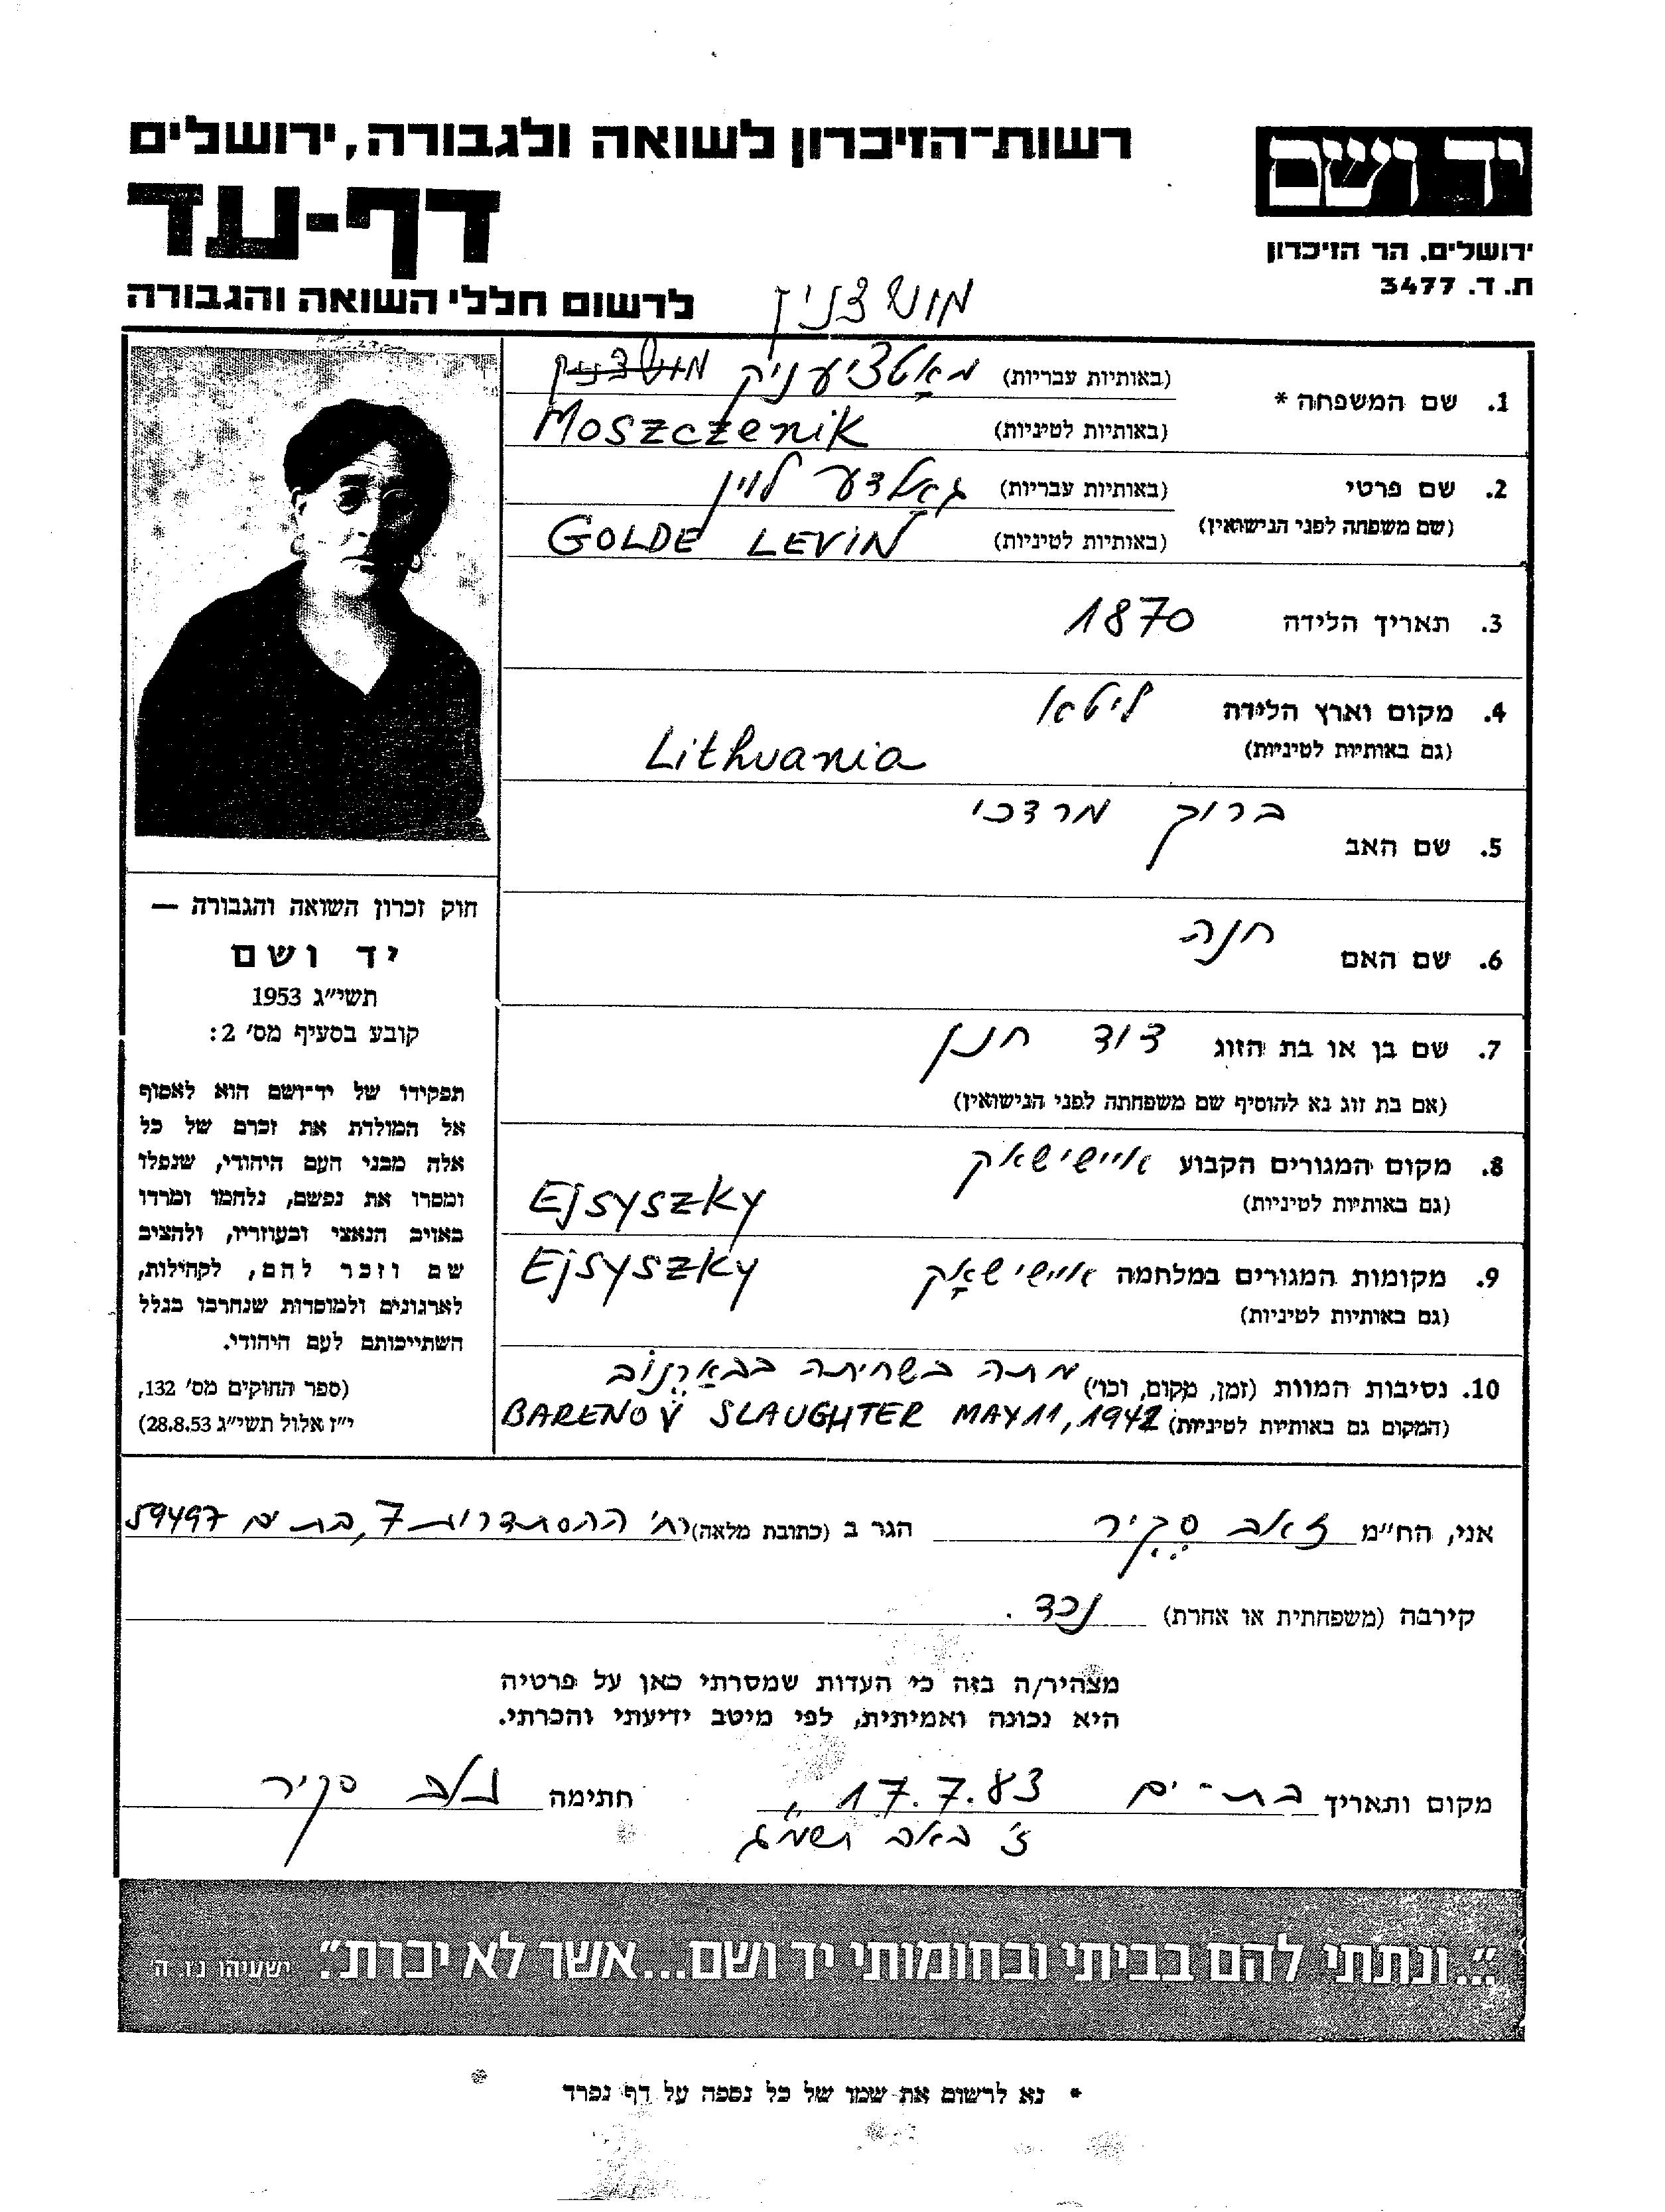 רשות־הזיכרון לשואה ולגבורה, ירושלים
יד ושם
דף-עד
ירושלים. הר הזיכרון
ת. ד. 3477
לרשום חללי השואה והגבורה
מושצניק
1. שם המשפחה *
(באותיות עבריות) מאָשטציעניק מושצניק
(באותיות לטיניות) Moszczenik
2. שם פרטי
(שם משפחה לפני הנישואין)
(באותיות עבריות) גאָלדע לוין
(באותיות לטיניות) GOLDE LEVIN
3. תאריך הלידה 1870
4. מקום וארץ הלידה ליטא
(גם באותיות לטיניות) Lithuania
5. שם האב ברוך מרדכי
6. שם האם חנה
7. שם בן או בת הזוג דוד חנן
(אם בת זוג נא להוסיף שם משפחתה לפני הנישואין)
8. מקום המגורים הקבוע איישישאק
(גם באותיות לטיניות) Ejsyszky
9. מקומות המגורים במלחמה איישישאָק
(גם באותיות לטיניות) Ejsyszky
10. נסיבות המוות (זמן, מקום, וכו') מתה בשחיטה בבאַרֶנוֹב
(המקום גם באותיות לטיניות) BARENOV SLAUGHTER MAY 11, 1942
חוק זכרון השואה והגבורה —
יד ושם
תשי״ג 1953
קובע בסעיף מס׳ 2:
תפקידו של יד־ושם הוא לאסוף
אל המולדת את זכרם של כל
אלה מבני העם היהודי, שנפלו
ומסרו את נפשם, נלחמו ומרדו
באויב הנאצי ובעוזריו, ולהציב
שם וזכר להם, לקהילות,
לארגונים ולמוסדות שנחרבו בגלל
השתייכותם לעם היהודי.
(ספר החוקים מס׳ 132,
י״ז אלול תשי״ג 28.8.53)
אני, הח״מ זאב סֶקִיר הגר ב (כתובת מלאה) רח' ההסתדרות 7, בת ים 59497
קירבה (משפחתית או אחרת) נכד.
מצהיר/ה בזה כי העדות שמסרתי כאן על פרטיה
היא נכונה ואמיתית, לפי מיטב ידיעתי והכרתי.
מקום ותאריך בת-ים 17.7.83 חתימה זאב סקיר
ז' באב תשמ"ג
״...ונתתי להם בביתי ובחומותי יד ושם...אשר לא יכרת״. ישעיהו נו. ה'
* נא לרשום את שמו של כל נספה על דף נפרד